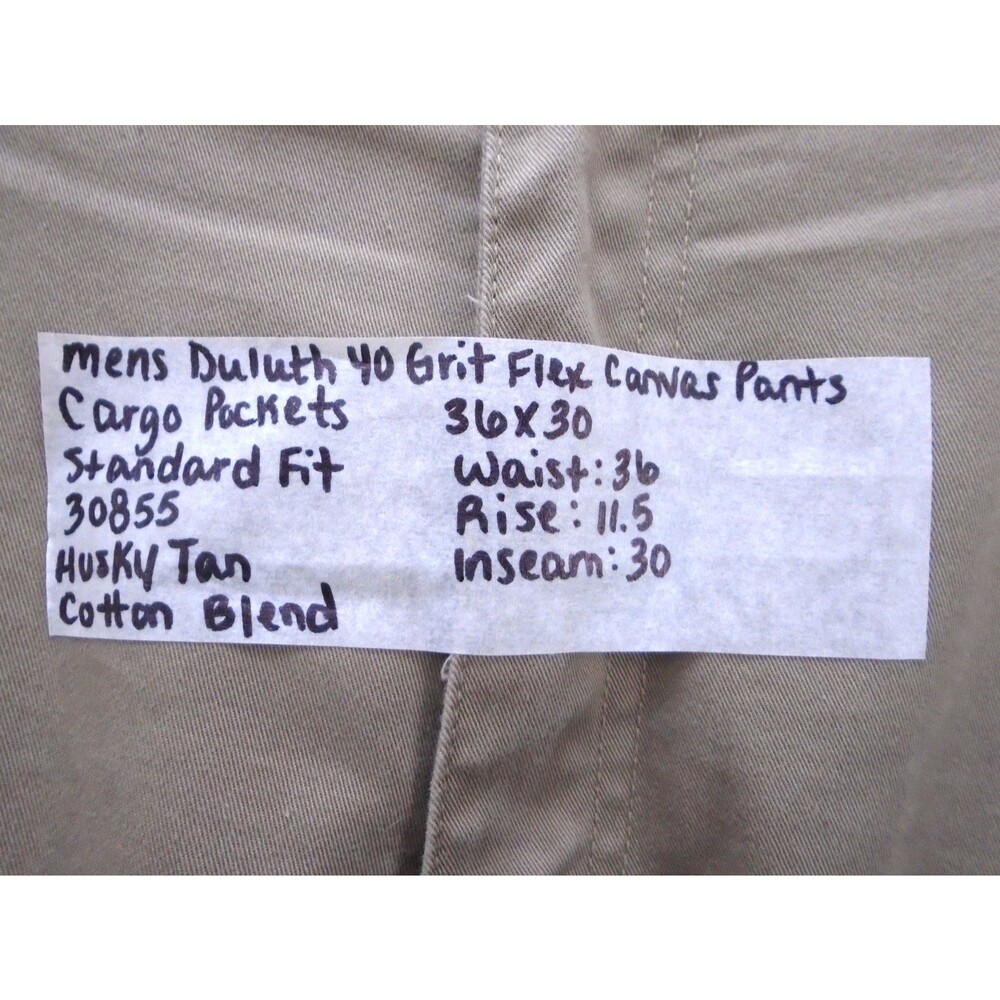 mens Duluth 40 Grit Flex Canvas Pants
Cargo Pockets 36X30
Standard Fit Waist: 36
30855 Rise: 11.5
Husky Tan Inseam: 30
Cotton Blend